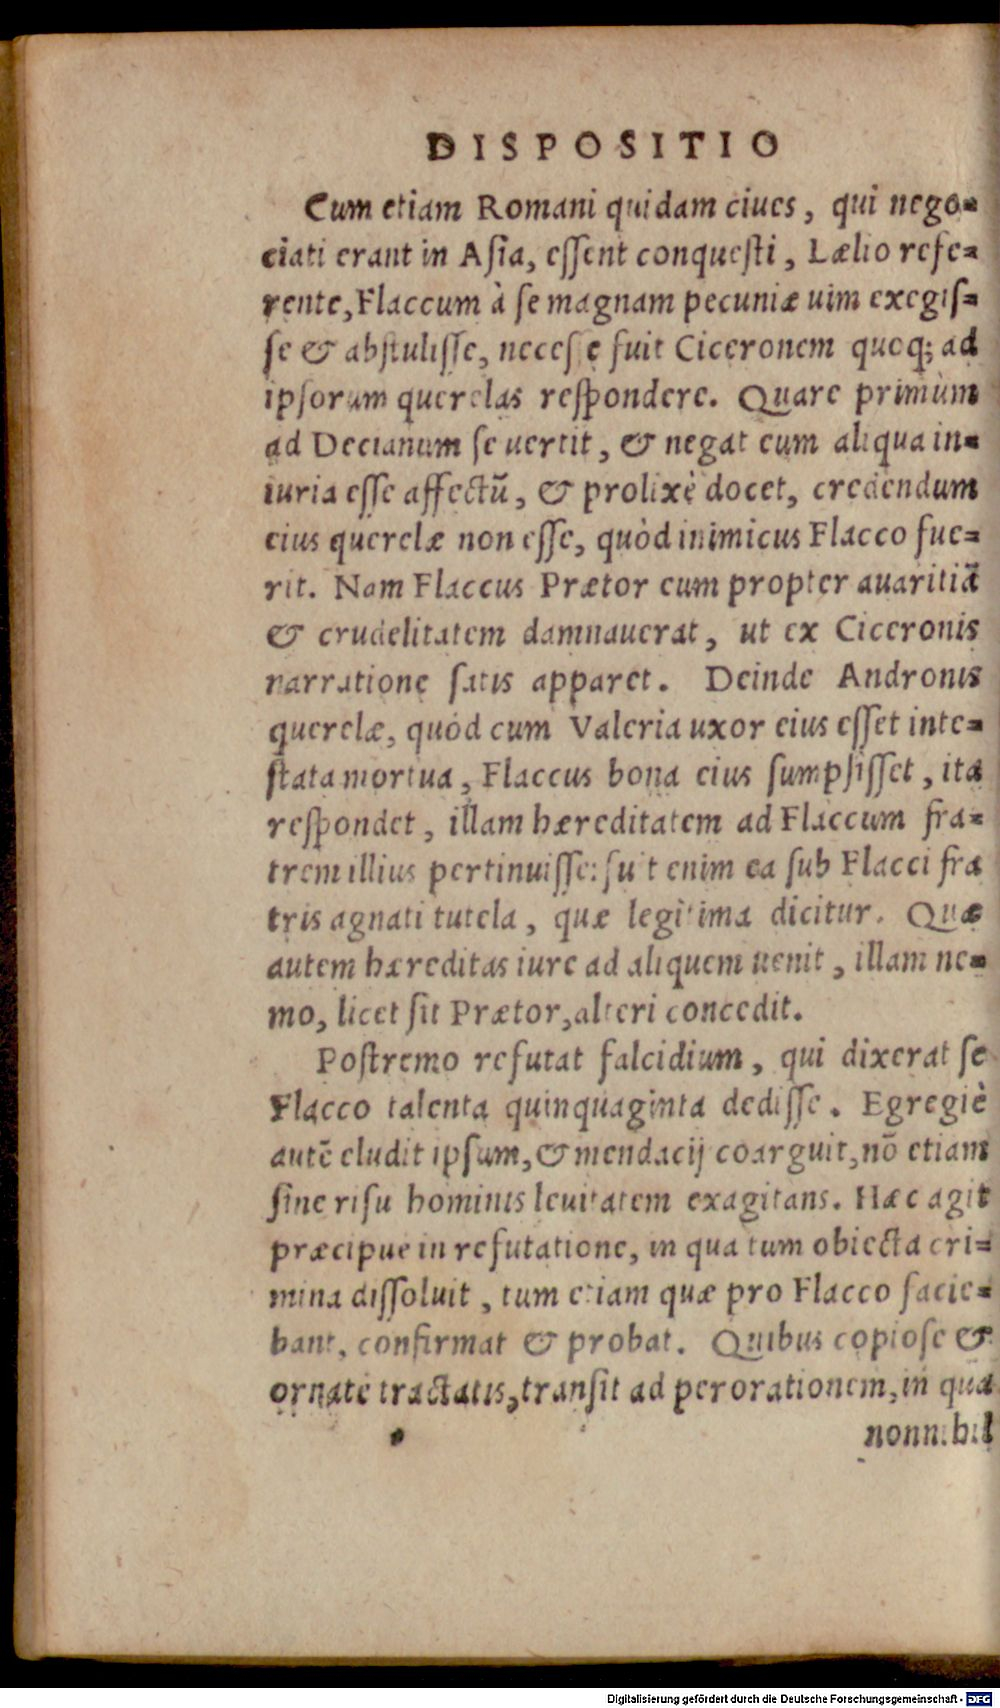 DISPOSITIO
Cum etiam Romani quidam ciues, qui nego=
ciati erant in Asia, essent conquesti, Lælio refe=
rente, Flaccum à se magnam pecuniæ uim exegis=
se & abstulisse, necesse fuit Ciceronem quoq; ad
ipsorum querelas respondere. Quare primùm
ad Decianum se uertit, & negat eum aliqua in=
iuria esse affectū, & prolixè docet, credendum
eius querelæ non esse, quòd inimicus Flacco fue=
rit. Nam Flaccus Prætor eum propter auaritiā
& crudelitatem damnauerat, ut ex Ciceronis
narratione satis apparet. Deinde Andronis
querelæ, quòd cum Valeria uxor eius esset inte=
stata mortua, Flaccus bona eius sumpsisset, ita
respondet, illam hæreditatem ad Flaccum fra=
trem illius pertinuisse: fuit enim ea sub Flacci fra
tris agnati tutela, quæ legitima dicitur. Quæ
autem hæreditas iure ad aliquem uenit, illam ne=
mo, licet sit Prætor, alteri concedit.
Postremo refutat falcidium, qui dixerat se
Flacco talenta quinquaginta dedisse. Egregiè
autē eludit ipsum, & mendacij coarguit, nō etiam
sine risu hominis leuitatem exagitans. Hæc agit
præcipue in refutatione, in qua tum obiecta cri=
mina dissoluit, tum etiam quæ pro Flacco facie=
bant, confirmat & probat. Quibus copiose &
ornate tractatis, transit ad perorationem, in qua
nonnihil
Digitalisierung gefördert durch die Deutsche Forschungsgemeinschaft - DFG